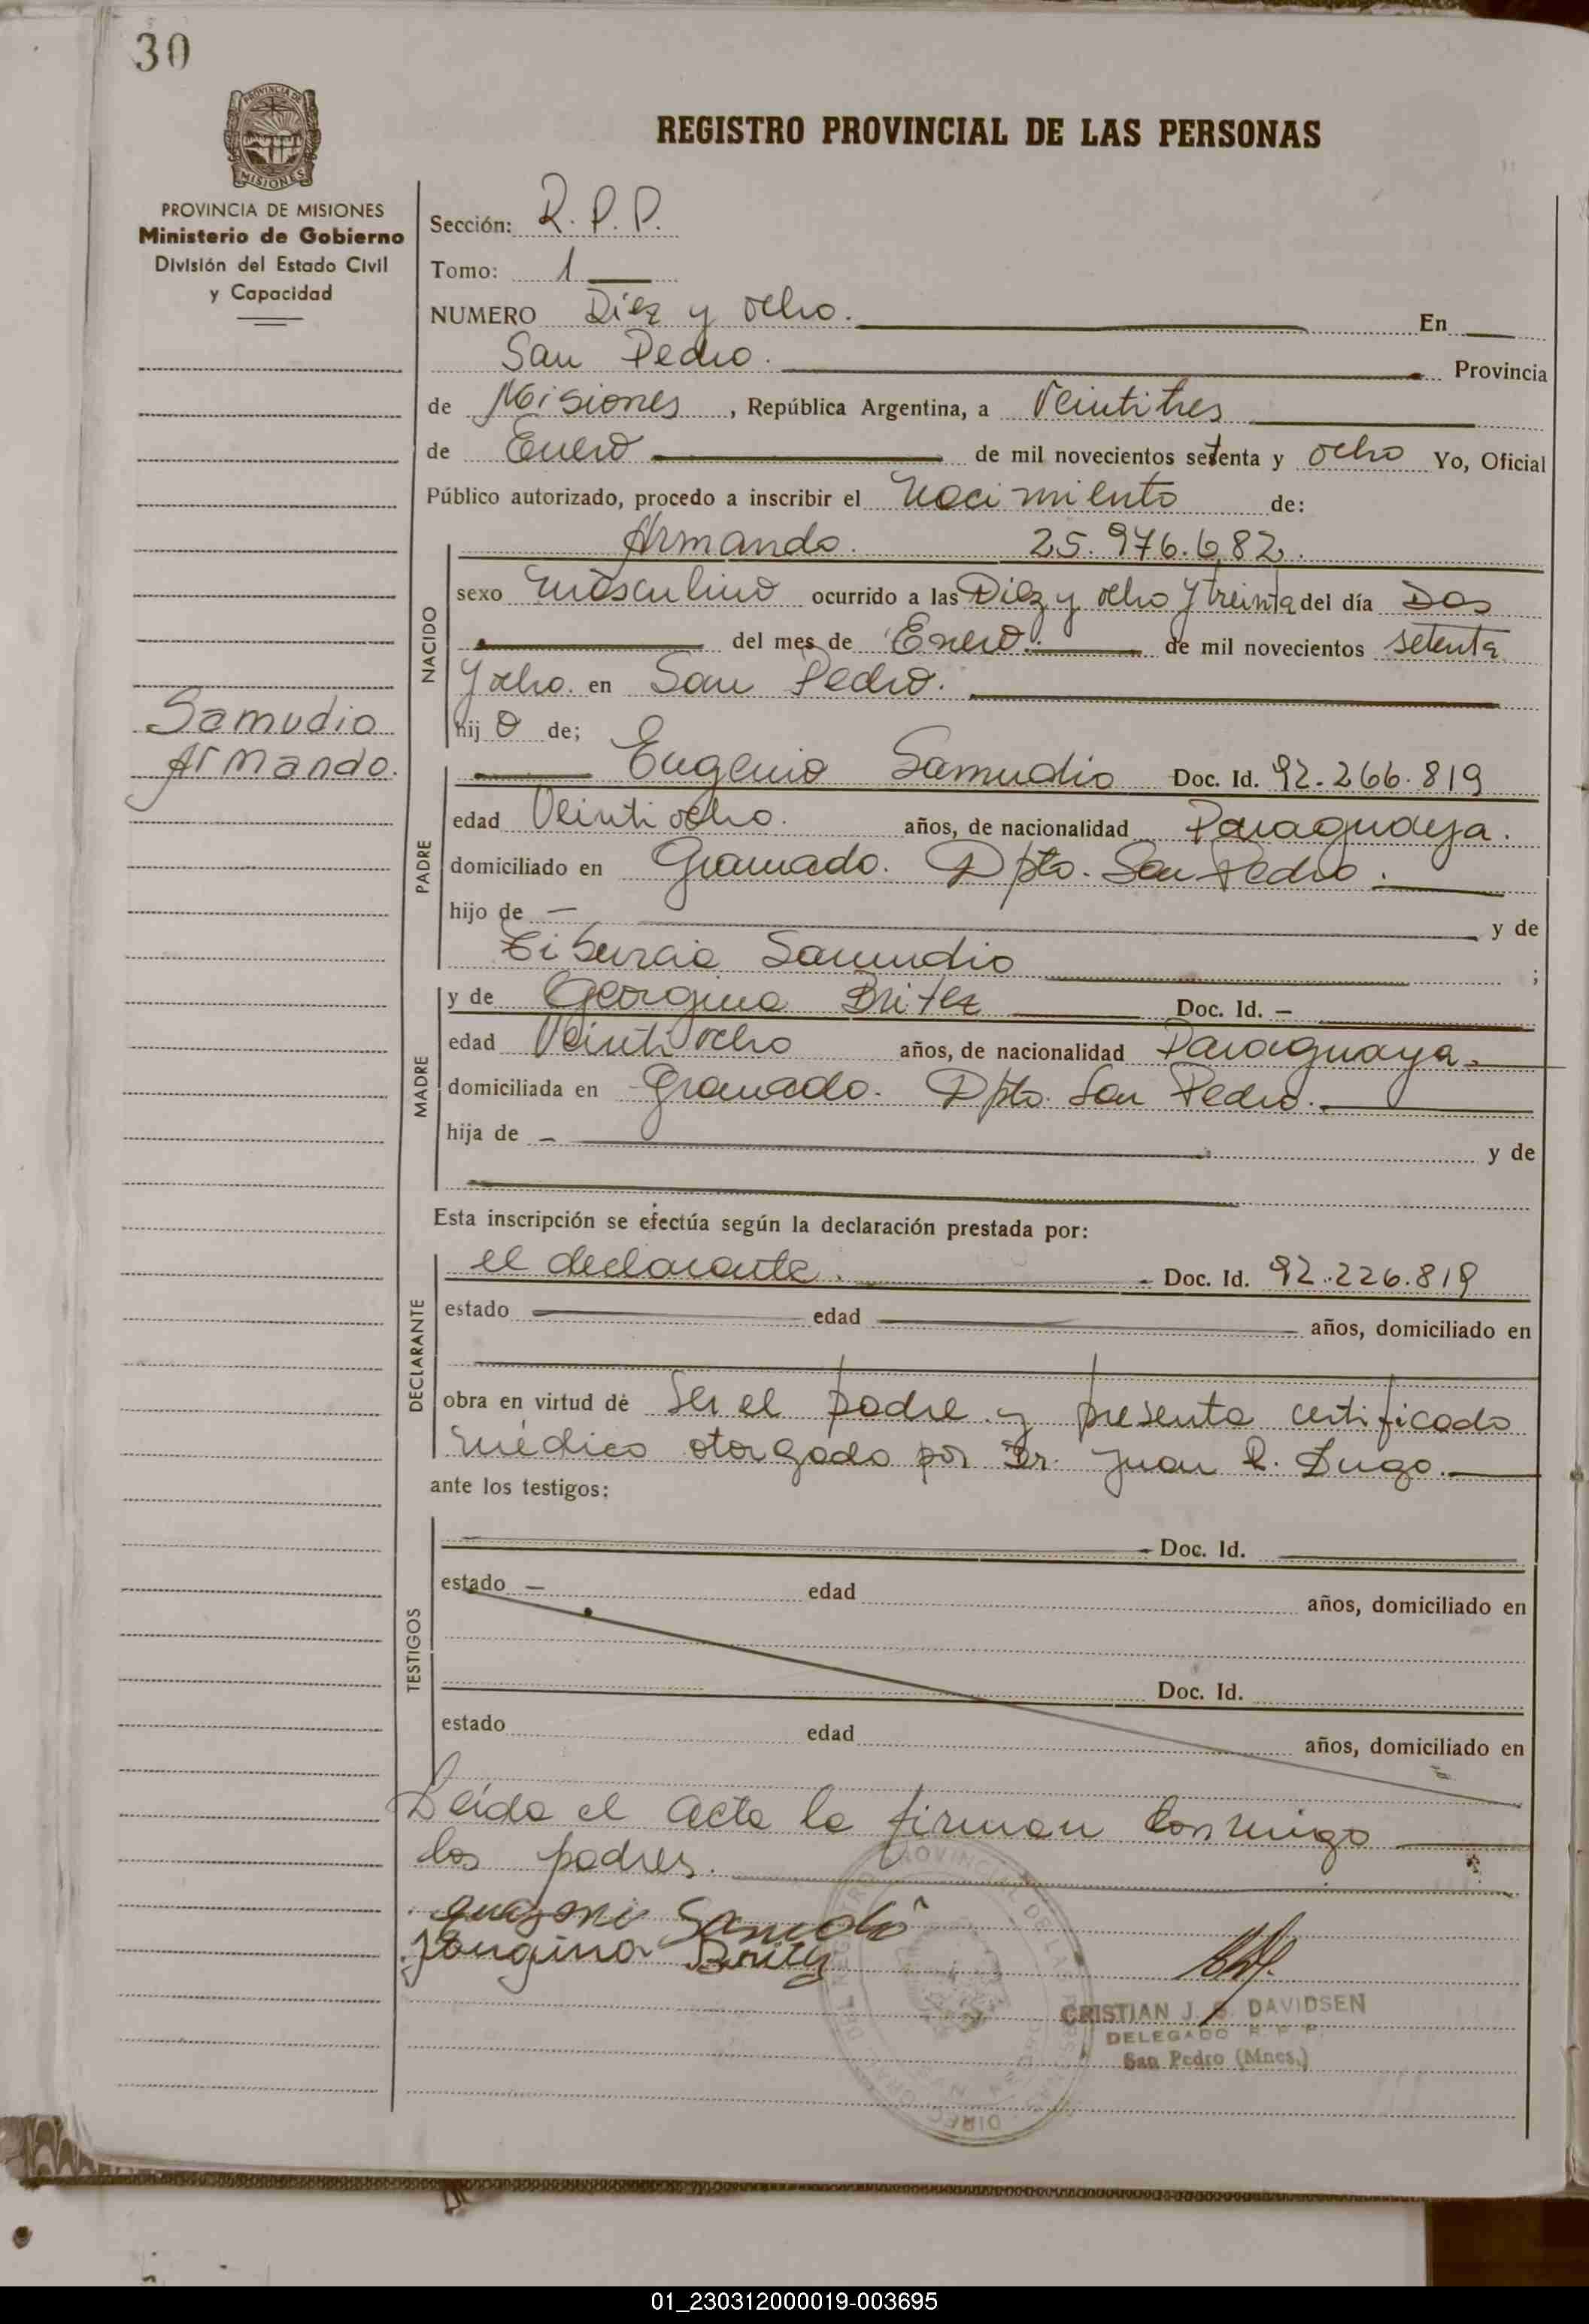 30
PROVINCIA DE
MISIONES
REGISTRO PROVINCIAL DE LAS PERSONAS
PROVINCIA DE MISIONES
Ministerio de Gobierno
División del Estado Civil
y Capacidad
Sección: R. P. P.
Tomo: 1
NUMERO Diez y ocho. En
San Pedro. Provincia
de Misiones, República Argentina, a Veintitres
de Enero de mil novecientos setenta y ocho Yo, Oficial
Público autorizado, procedo a inscribir el Nacimiento de:
Armando. 25.976.682.
NACIDO
sexo Masculino ocurrido a las Diez y ocho y treinta del día Dos
del mes de Enero. de mil novecientos setenta
y ocho. en San Pedro.
hijo de;
Samudio
Armando.
Eugenio Samudio Doc. Id. 92.266.819
PADRE
edad Veintiocho. años, de nacionalidad Paraguaya.
domiciliado en Gramado. Dpto. San Pedro.
hijo de — y de
Tiburcia Samudio ;
y de Georgina Britez Doc. Id. —
MADRE
edad Veintiocho años, de nacionalidad Paraguaya.
domiciliada en Gramado. Dpto. San Pedro.
hija de — y de
Esta inscripción se efectúa según la declaración prestada por:
el declarante. Doc. Id. 92.226.819
DECLARANTE
estado edad años, domiciliado en
obra en virtud de Ser el padre y presenta certificado
médico otorgado por Dr. Juan R. Dugo.
ante los testigos:
Doc. Id.
TESTIGOS
estado — edad años, domiciliado en
Doc. Id.
estado edad años, domiciliado en
Leída el acta la firman conmigo
los padres.
CRISTIAN J. S. DAVIDSEN
DELEGADO R. P. P.
San Pedro (Mnes.)
01_230312000019-003695